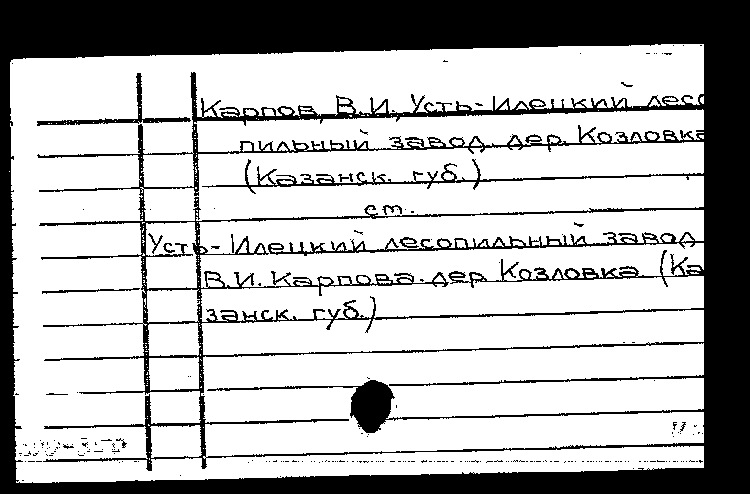 Карпов, В.И., Усть-Илецкий лесо
пильный завод. дер. Козловка
(Казанск. губ.)
ст.
Усть-Илецкий лесопильный завод
В.И. Карпова. дер. Козловка (Ка
занск. губ.)